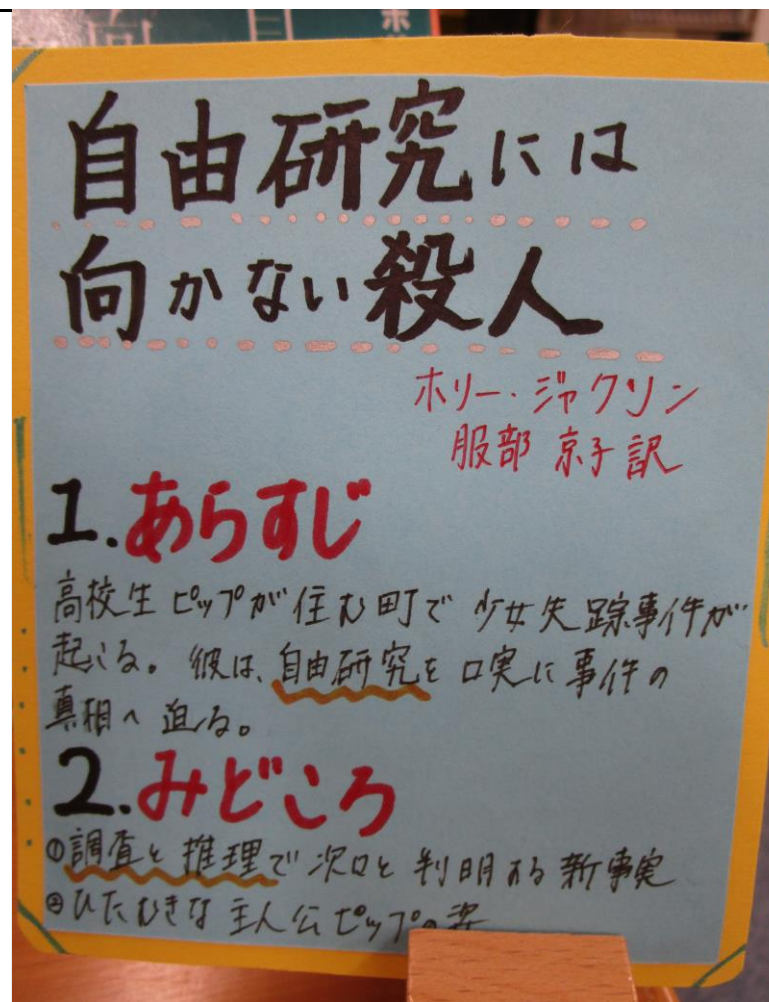 自由研究には
向かない殺人
ホリー・ジャクソン
服部 京子 訳
1.あらすじ
高校生ピップが住む町で少女失踪事件が
起こる。彼は、自由研究を口実に事件の
真相へ迫る。
2.みどころ
①調査と推理で次々と判明する新事実
②ひたむきな主人公ピップの姿